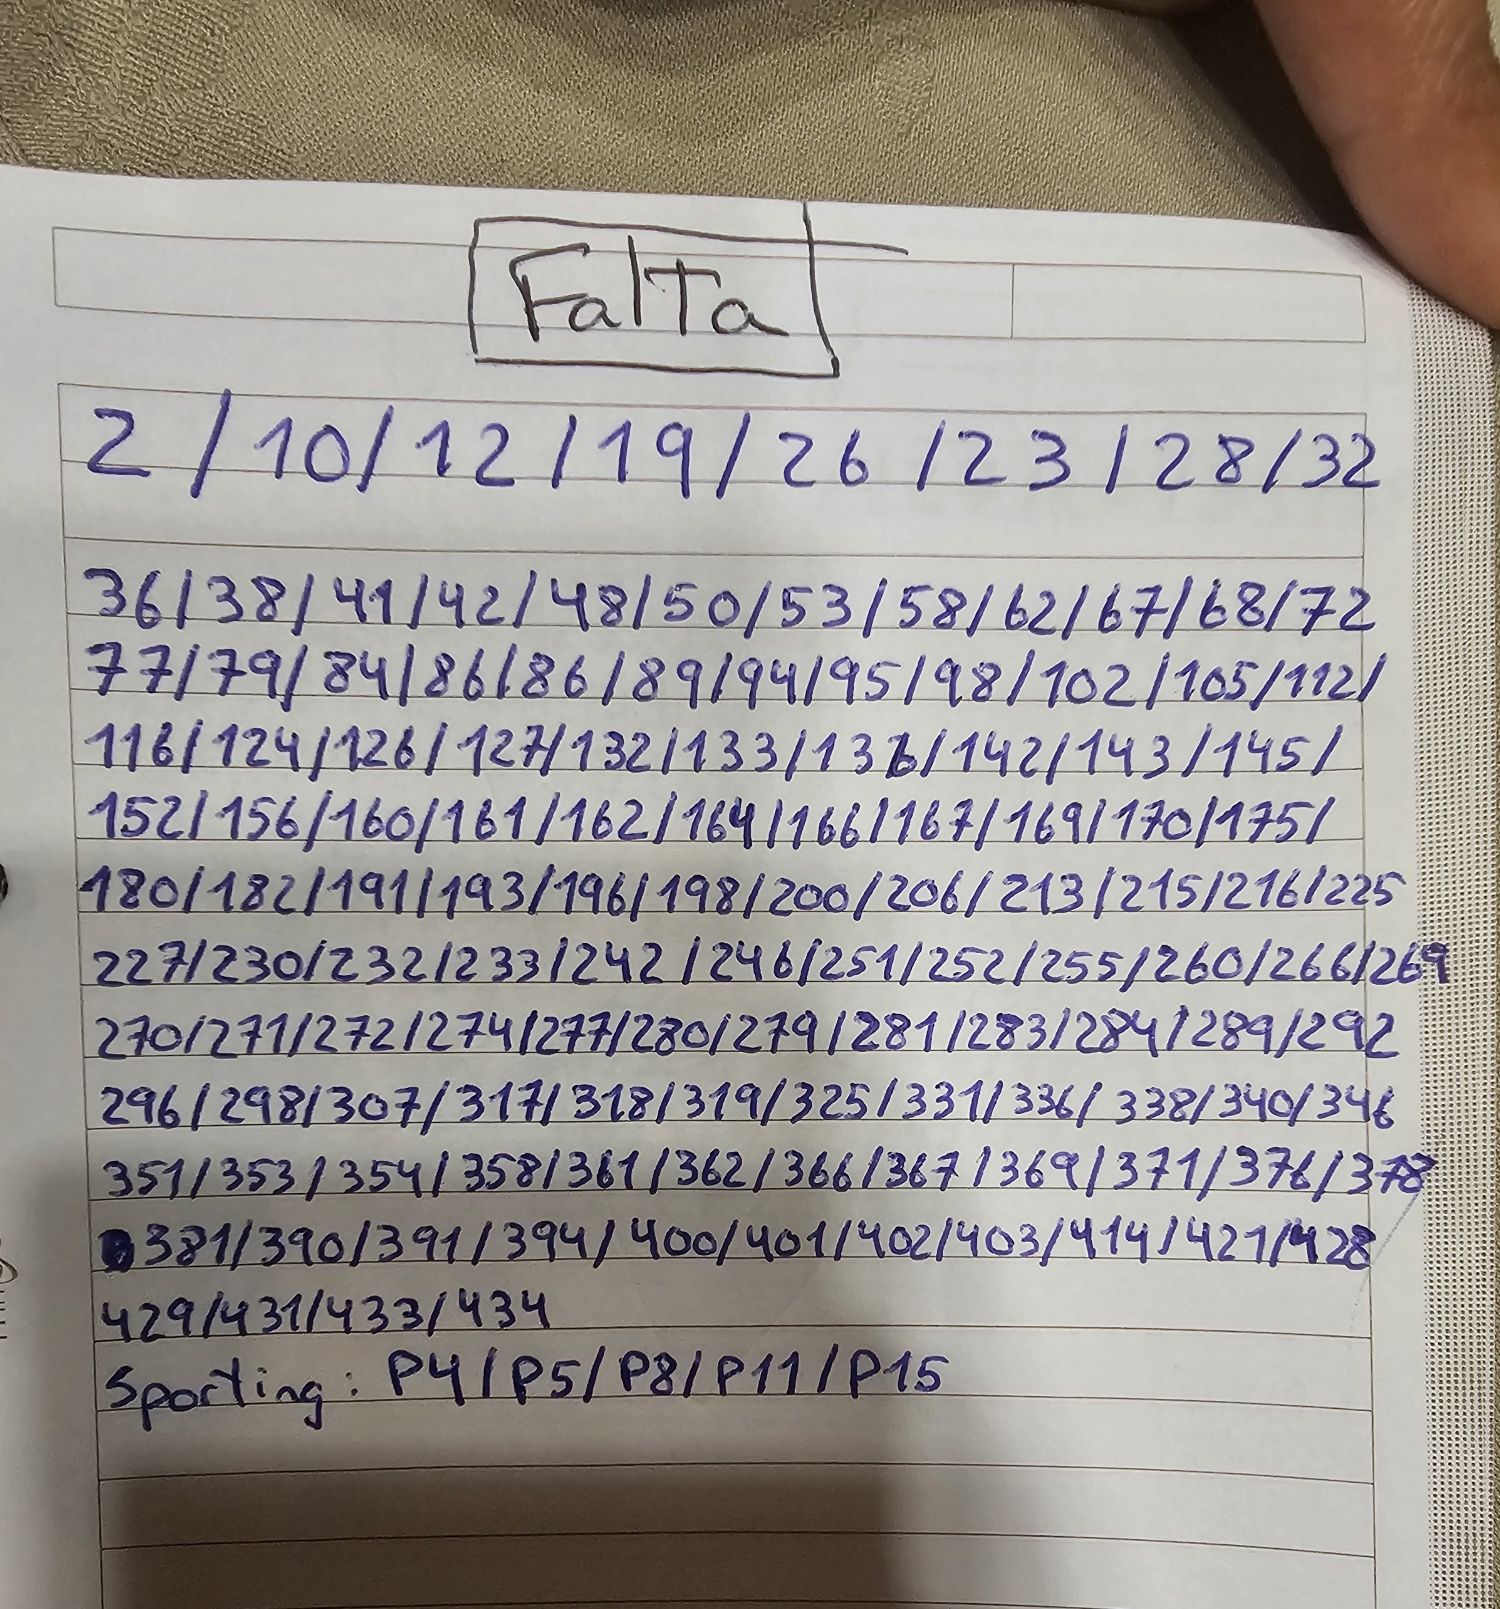 Falta
2 / 10 / 12 / 19 / 26 / 23 / 28 / 32
36 / 38 / 41 / 42 / 48 / 50 / 53 / 58 / 62 / 67 / 68 / 72
77 / 79 / 84 / 86 / 86 / 89 / 94 / 95 / 98 / 102 / 105 / 112 /
116 / 124 / 126 / 127 / 132 / 133 / 136 / 142 / 143 / 145 /
152 / 156 / 160 / 161 / 162 / 164 / 166 / 167 / 169 / 170 / 175 /
180 / 182 / 191 / 193 / 196 / 198 / 200 / 206 / 213 / 215 / 216 / 225
227 / 230 / 232 / 233 / 242 / 246 / 251 / 252 / 255 / 260 / 266 / 269
270 / 271 / 272 / 274 / 277 / 280 / 279 / 281 / 283 / 284 / 289 / 292
296 / 298 / 307 / 317 / 318 / 319 / 325 / 331 / 336 / 338 / 340 / 346
351 / 353 / 354 / 358 / 361 / 362 / 366 / 367 / 369 / 371 / 376 / 378
381 / 390 / 391 / 394 / 400 / 401 / 402 / 403 / 414 / 421 / 428
429 / 431 / 433 / 434
Sporting: P4 / P5 / P8 / P11 / P15